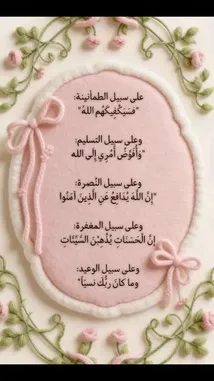 على سبيل الطمأنينة:
"فَسَيَكْفِيكَهُم اللهُ"
وعلى سبيل التسليم:
"وَأُفَوِّضُ أَمْرِي إِلَى الله
وعلى سبيل النُصرة:
"إنَّ اللَّهَ يُدَافِعُ عَنِ الَّذِينَ آمَنُوا
وعلى سبيل المغفرة:
إنَّ الْحَسَنَاتِ يُذْهِبْنَ السَّيِّئَاتِ
وعلى سبيل الوعيد:
وما كانَ ربُّكَ نسيّاً"